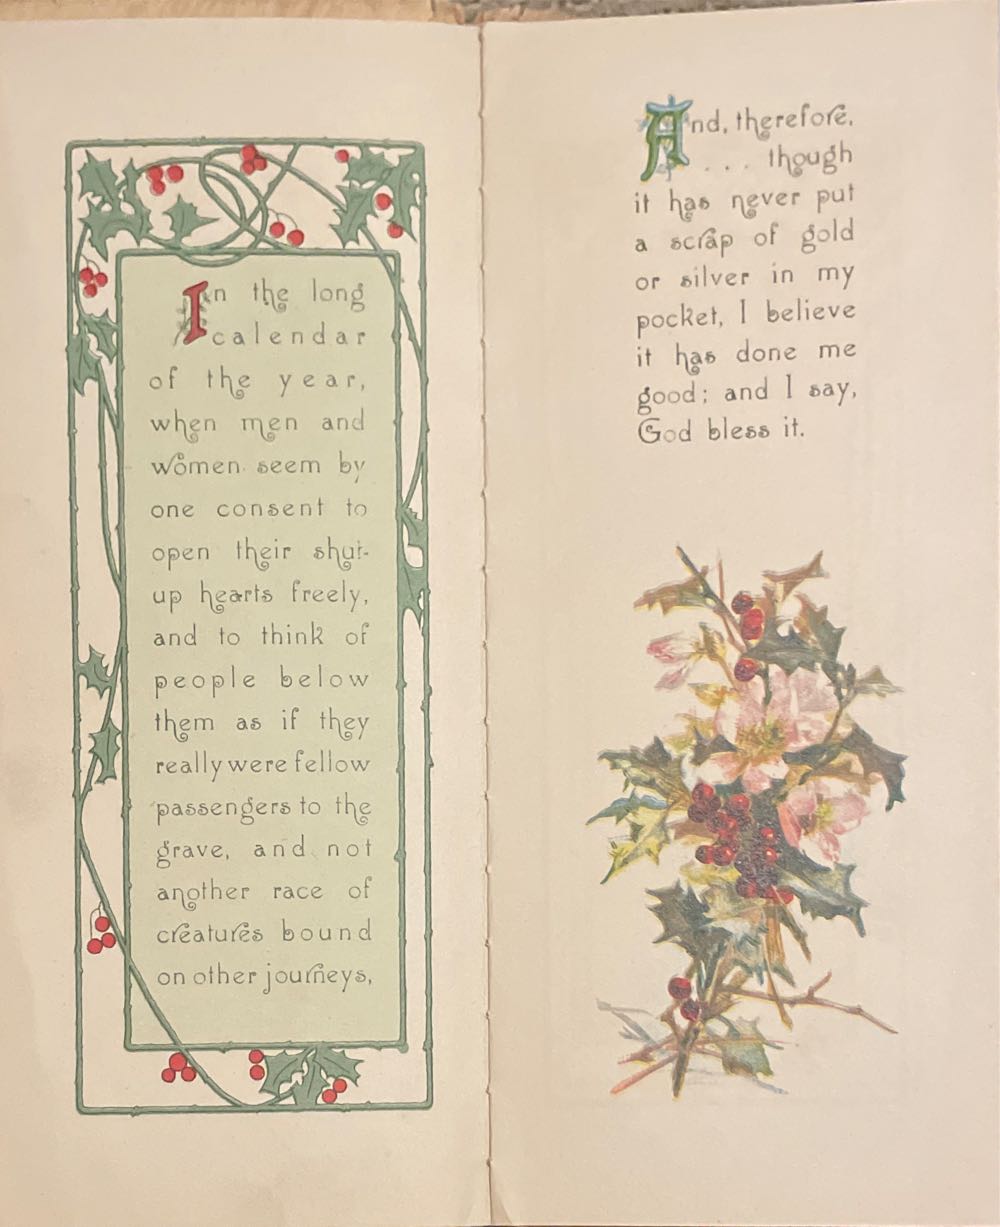 In the long
calendar
of the year,
when men and
women seem by
one consent to
open their shut-
up hearts freely,
and to think of
people below
them as if they
really were fellow
passengers to the
grave, and not
another race of
creatures bound
on other journeys,
And, therefore,
... though
it has never put
a scrap of gold
or silver in my
pocket, I believe
it has done me
good; and I say,
God bless it.